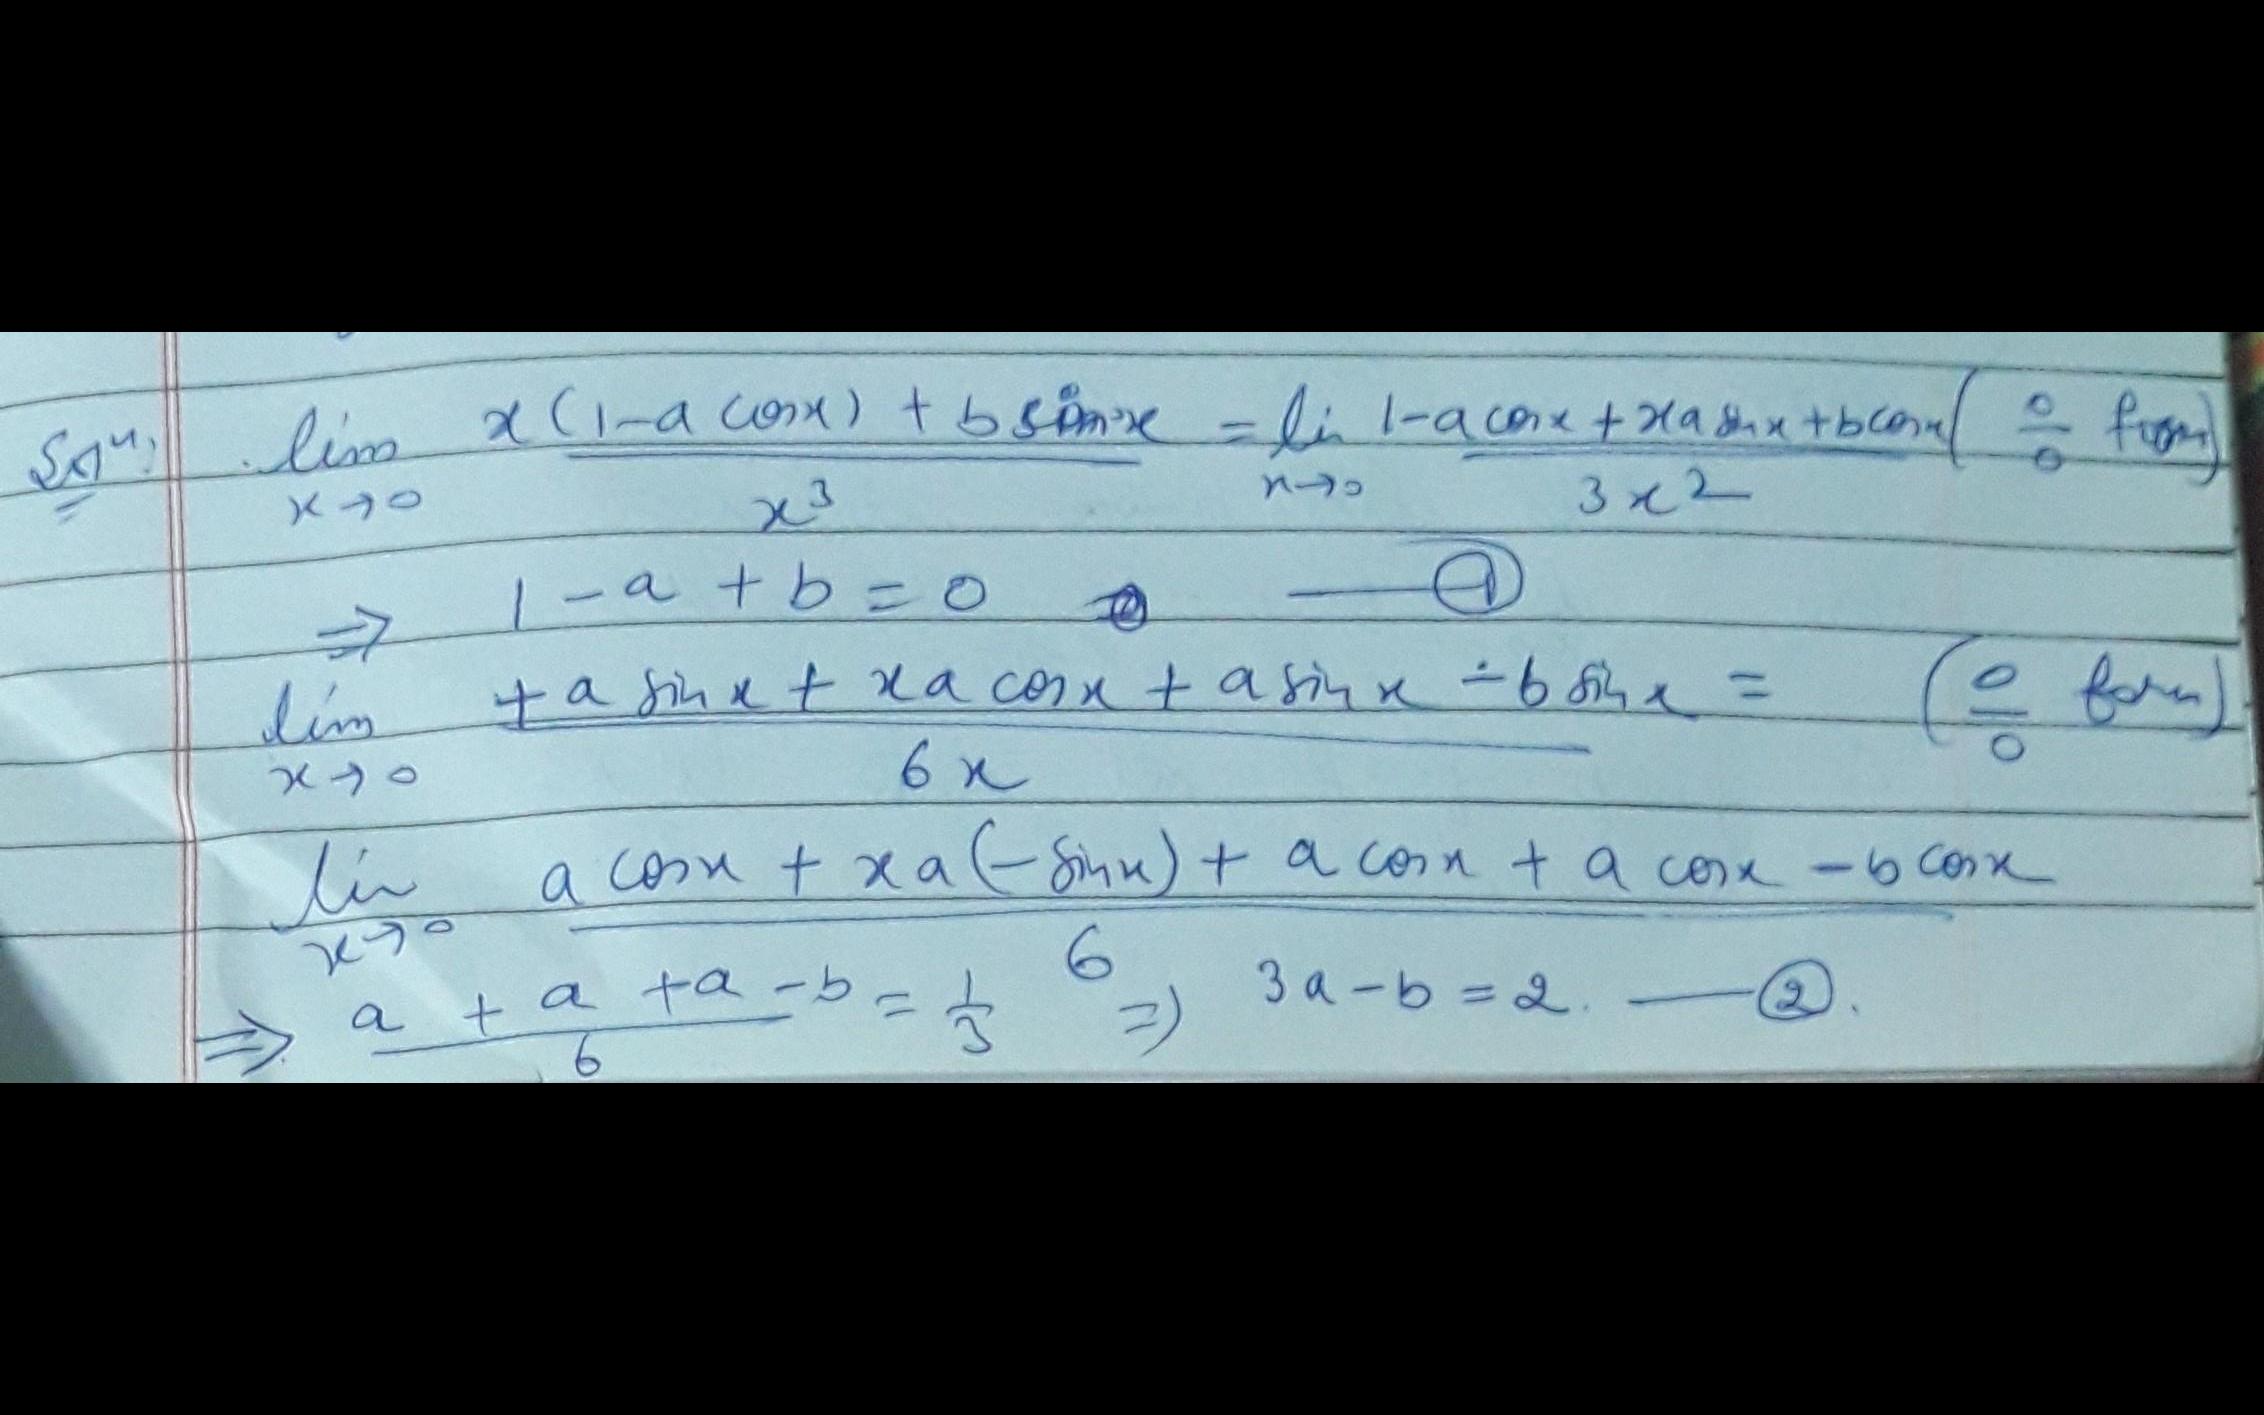 Solⁿ: lim x→0 x(1-a cosx) + b sinx / x³ = li x→0 1-a cosx + xa sinx + b cosx / 3x² (0/0 form)
⇒ 1 - a + b = 0 —①
lim x→0 + a sin x + xa cosx + a sin x - b sin x / 6x = (0/0 form)
lim x→0 a cosx + xa(-sinx) + a cosx + a cosx - b cosx / 6
⇒ a + a + a - b / 6 = 1/3 ⇒ 3a - b = 2. —②.